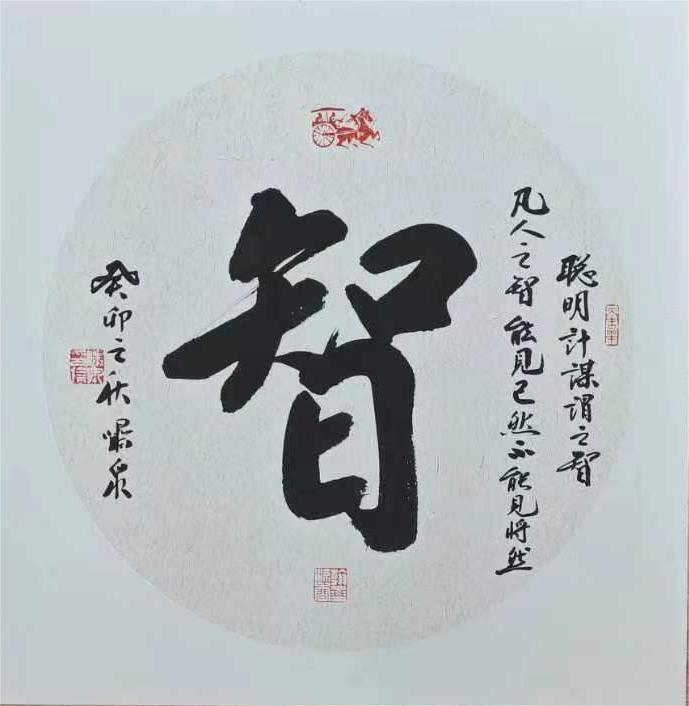 聪明计谋谓之智
凡人之智能见已然不能见将然
智
癸卯之秋